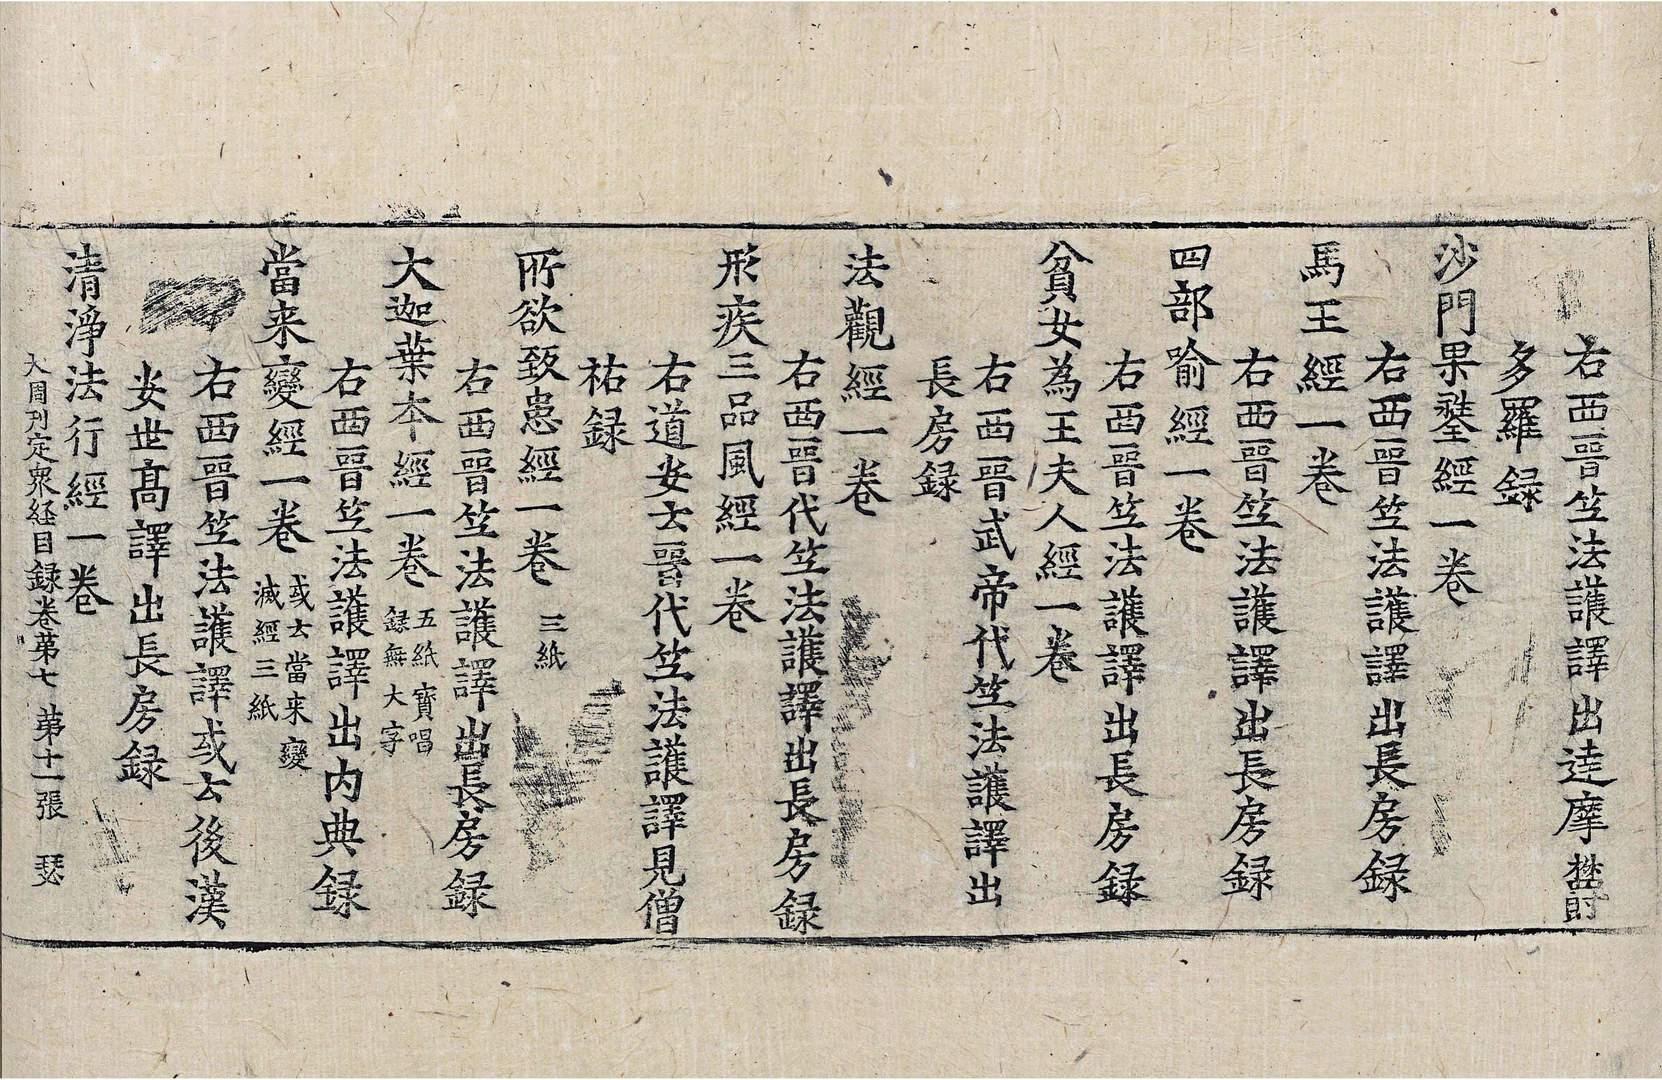 右西晉竺法護譯出達摩欝
多羅録
沙門果𨭻經一卷
右西晉竺法護譯出長房録
馬王經一卷
右西晉竺法護譯出長房録
四部喻經一卷
右西晉竺法護譯出長房録
貧女為王夫人經一卷
右西晉武帝代竺法護譯出
長房録
法觀經一卷
右西晉代竺法護譯出長房録
形疾三品風經一卷
右道安云晉代竺法護譯見僧
祐録
所欲致患經一卷 三紙
右西晉竺法護譯出長房録
大迦葉本經一卷 五紙寶唱
録無大字
右西晉竺法護譯出内典録
當来變經一卷 或云當来變
滅經三紙
右西晉竺法護譯或云後漢
安世高譯出長房録
清淨法行經一卷
大周刊定衆経目録卷第七 第十一張 瑟